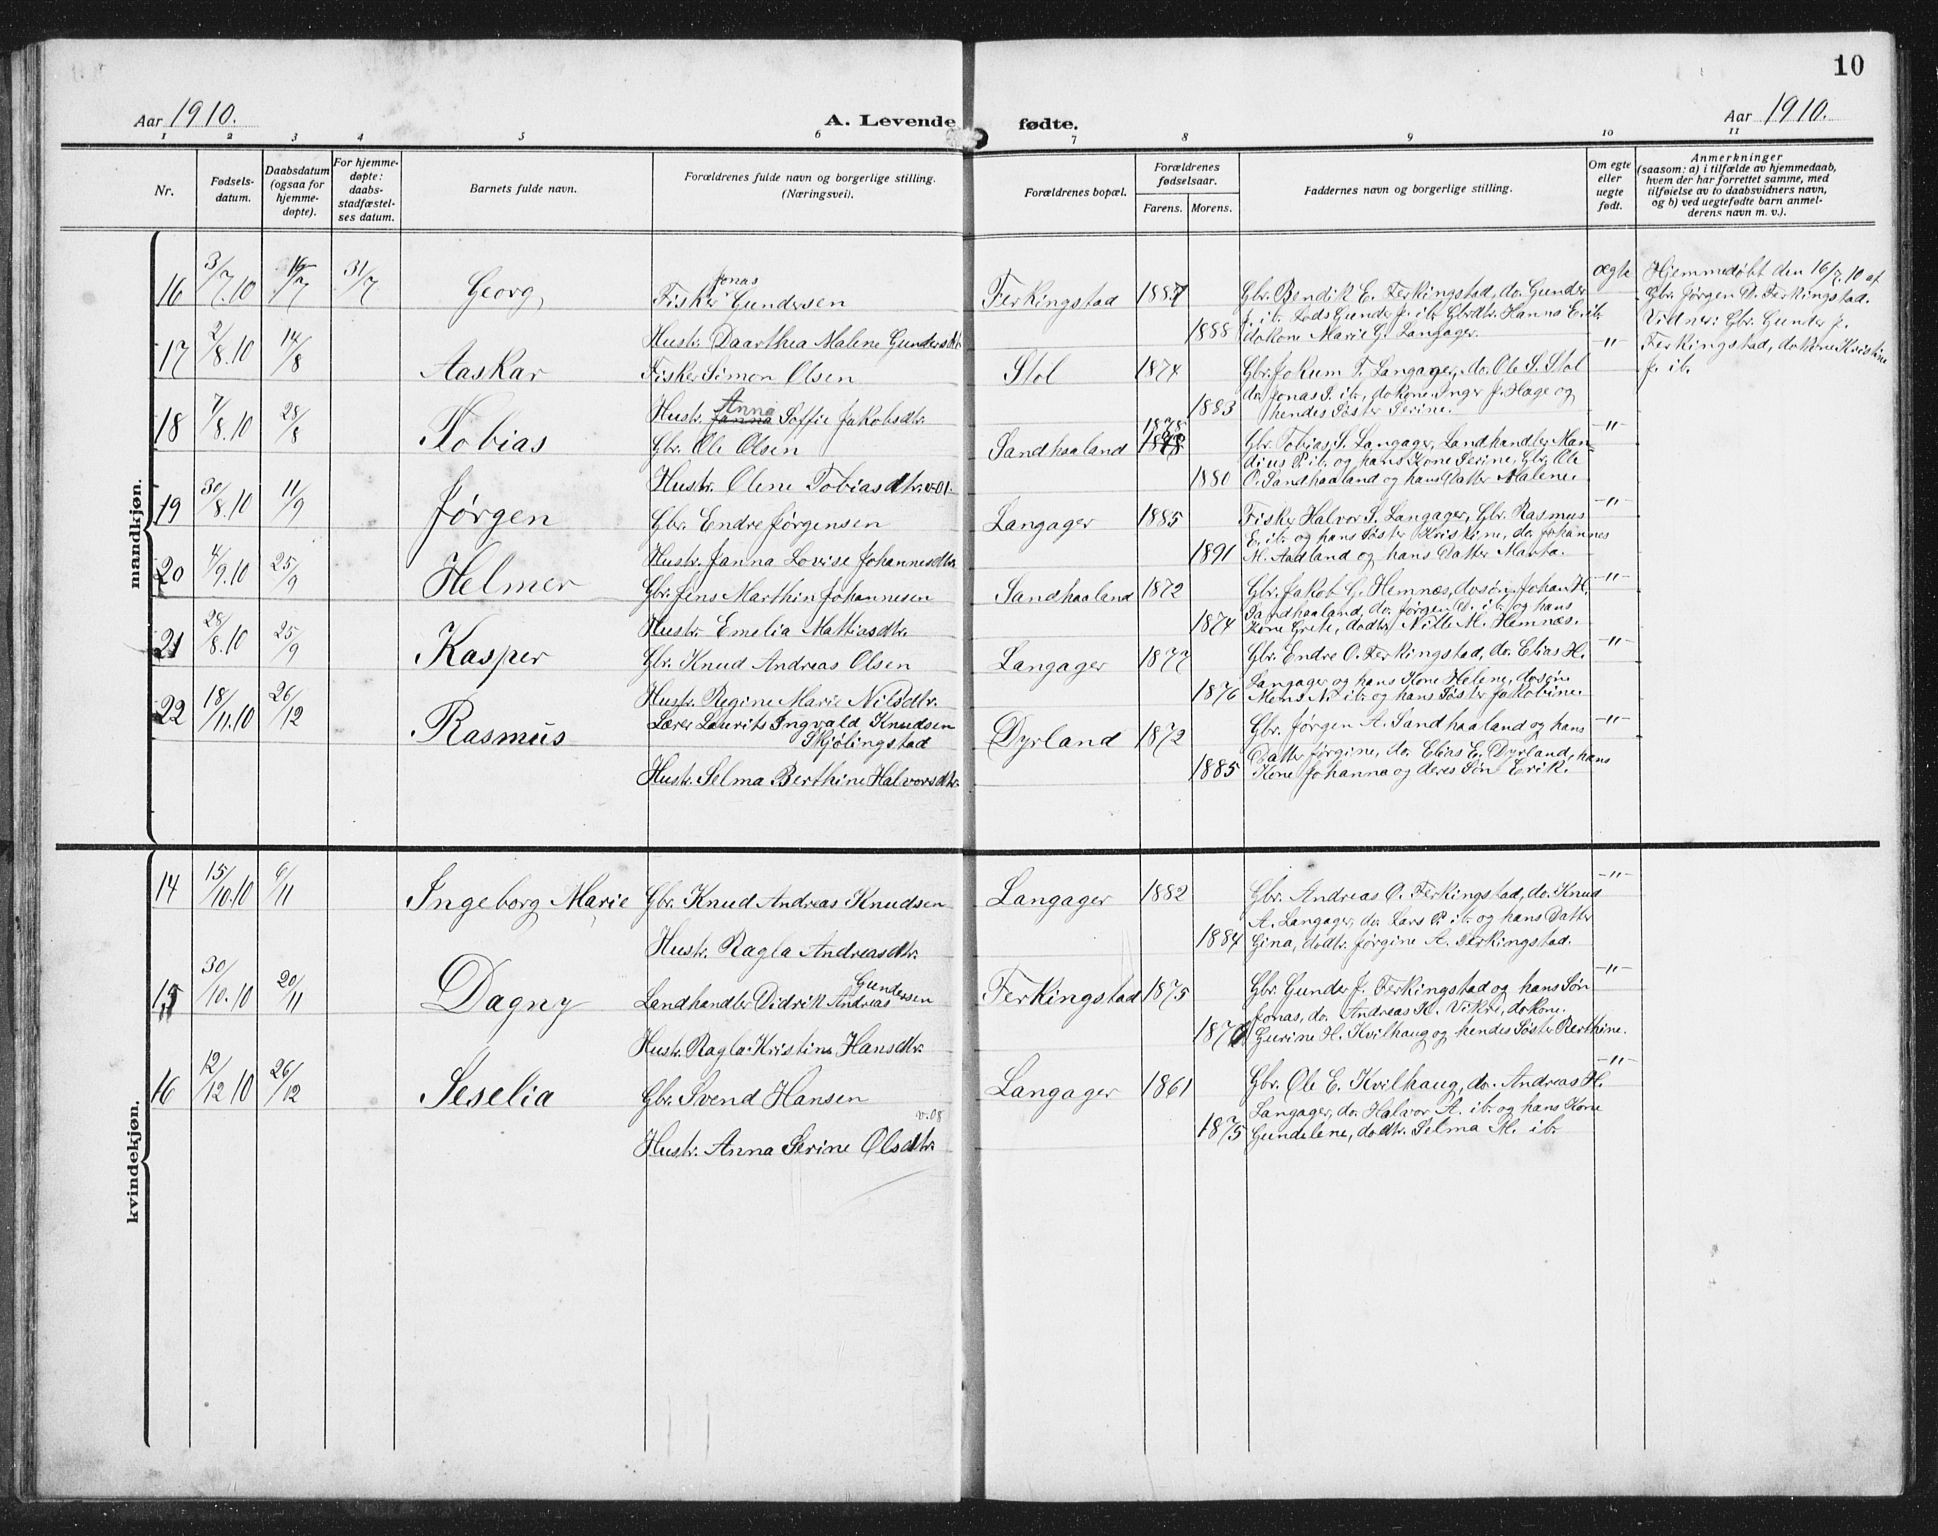 10
Aar 1910.
A. Levende fødte.
Aar 1910.
1 2 3 4 5 6 7 8 9 10 11
Nr.
Fødsels-
datum.
Daabsdatum
(ogsaa for
hjemme-
døpte).
For hjemme-
døpte:
daabs-
stadfæstel-
ses datum.
Barnets fulde navn.
Forældrenes fulde navn og borgerlige stilling.
(Næringsvei).
Forældrenes bopæl.
Forældrenes
fødselsaar.
Farens. Morens.
Faddernes navn og borgerlige stilling.
Om egte
eller
uegte
født.
Anmerkninger
(saasom: a) i tilfælde av hjemmedaab,
hvem der har forrettet samme, med
tilføielse av to daabsvidners navn,
og b) ved uegtefødte barn anmel-
derens navn m. v.).
mandkjøn.
16 3/7.10 16/7 31/7 Georg
Fisker Jonas Gundersen
Hustr. Daarthea Malene Gundersdtr.
Ferkingstad 1887
1888
Gbr. Bendik E. Ferkingstad, do. Gunder
J. ib. Lods Gunder J. ib. Gbrdtr. Hanna E. ib.
dokone Marie G. Langager.
ægte
Hjemmedøbt den 16/7.10 af
Gbr. Jørgen D. Ferkingstad.
Vidner: Gbr. Gunder J.
Ferkingstad, dokone Kristine
J. ib.
17 2/8.10 14/8 Aaskar
Fisker Simon Olsen
Hustr. Janna Anna Soffie Jakobsdtr.
Stol 1874
1883
Gbr. Jokum T. Langager, do. Ole S. Stol
do. Jonas S. ib., dokone Inger J. Hage og
hendes Søster Serine.
-"-
18 7/8.10 28/8 Tobias
Gbr. Ole Olsen
Hustr. Olene Tobiasdtr. v-01-
Sandhaaland 1878
1880
Gbr. Tobias S. Langager, Landhandler Man-
dius P. ib. og hans Kone Serine, Gbr. Ole
O. Sandhaaland og hans Datter Malene.
-"-
19 30/8.10 11/9 Jørgen
Gbr. Endre Jørgensen
Hustr. Janna Lovise Johannesdtr.
Langager 1885
1891
Fisker Halvor S. Langager, Gbr. Rasmus
E. ib. og hans Søster Kristine, do. Johannes
M. Aadland og hans Datter Marta.
-"-
20 4/9.10 25/9 Helmer
Gbr. Jens Marthin Johannesen
Hustr. Emelia Mathiasdtr.
Sandhaaland 1872
1874
Gbr. Jakob G. Hemnæs, dosøn Johan H.
Sandhaaland, do. Jørgen D. ib. og hans
Kone Grete, dodtr. Nille M. Hemnæs.
-"-
21 28/8.10 25/9 Kasper
Gbr. Knud Andreas Olsen
Hustr. Regine Marie Nilsdtr.
Langager 1877
1876
Gbr. Endre O. Ferkingstad, do. Elias H.
Langager og hans Kone Helene, dosøn
Mons N. ib. og hans Søster Jakobine.
-"-
22 18/11.10 26/12 Rasmus
Lærer Laurits Ingvald Knudsen
Skjølingstad
Hustr. Selma Berthine Halvorsdtr.
Dyrland 1872
1885
Gbr. Jørgen A. Sandhaaland og hans
Datter Jørgine, do. Elias E. Dyrland, hans
Kone Johanna og deres Søn Erik.
-"-
kvindekjøn.
14 15/10.10 6/11 Ingeborg Marie
Gbr. Knud Andreas Knudsen
Hustr. Ragla Andreasdtr.
Langager 1882
1884
Gbr. Andreas O. Ferkingstad, do. Knud
A. Langager, do. Lars P. ib. og hans Datter
Gina, dodtr. Jørgine A. Ferkingstad.
-"-
15 30/10.10 20/11 Dagny
Landhandler Didrik Andreas Gundersen
Hustr. Ragla Kristine Hansdtr.
Ferkingstad 1875
Gbr. Gunder J. Ferkingstad og hans Søn
Jonas, do. Andreas K. Vikre, dokone
Gurine H. Kvilhaug og hendes Søster Berthine.
-"-
16 12/12 10 26/12 Seselia
Gbr. Svend Hansen
v.08
Hustr. Anna Serine Olsdtr.
Langager 1861
1875
Gbr. Ole E. Kvilhaug, do. Andreas H.
Langager, do. Halvor A. ib. og hans Kone
Gundelene, dodtr. Selma M. ib.
-"-